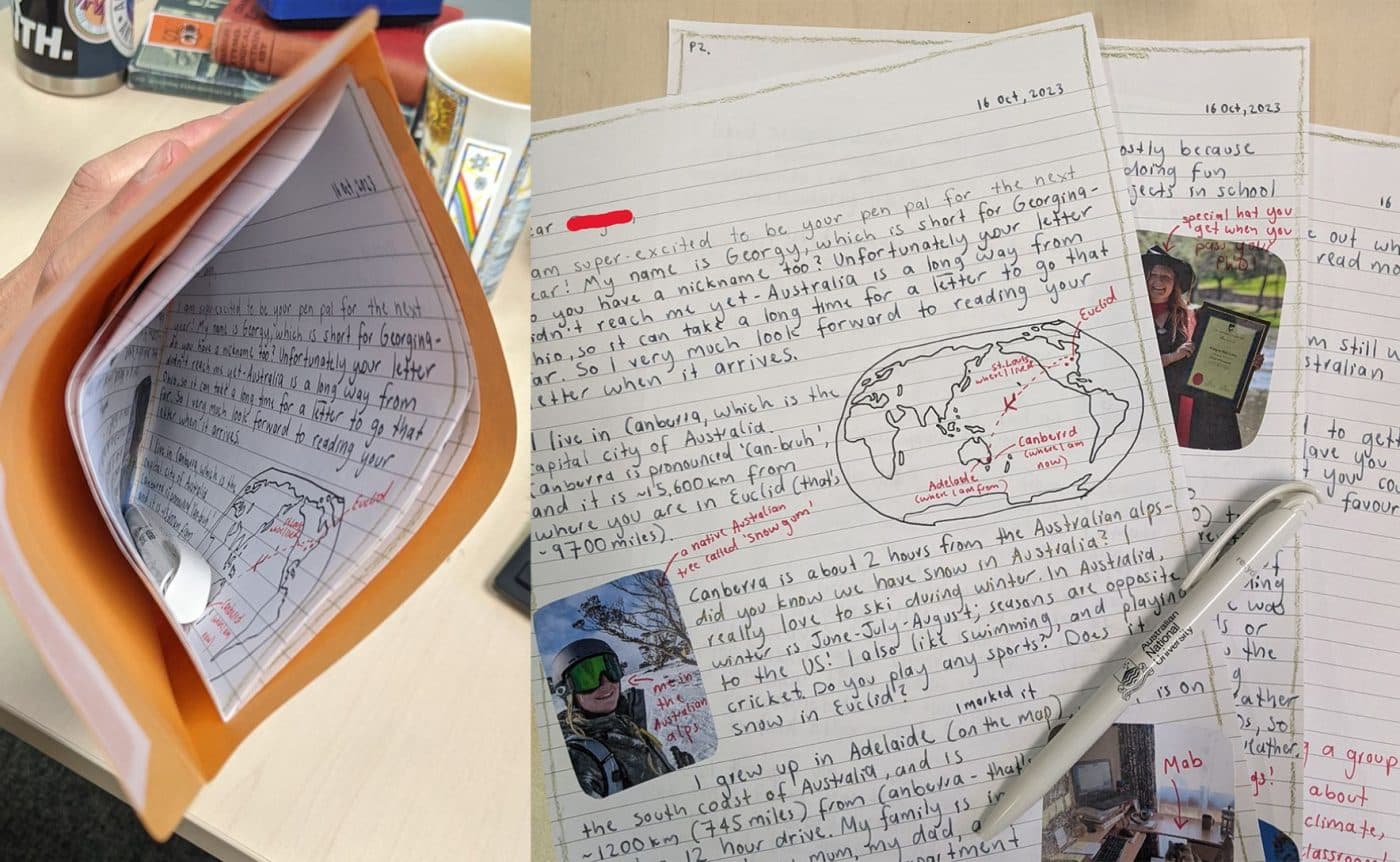 TH.
16 Oct, 2023
I am super-excited to be your pen pal for the next
year! My name is Georgy, which is short for Georgina-
do you have a nickname too? Unfortunately your letter
didn't reach me yet - Australia is a long way from
Ohio, so it can take a long time for a letter to go that
far. So I very much look forward to reading your
letter when it arrives.
I live in Canberra, which is the
capital city of Australia.
Canberra is pronounced
and it is
Euclid
P2.
16 Oct, 2023
ear
am super-excited to be your pen pal for the next
ear! My name is Georgy, which is short for Georgina-
o you have a nickname too? Unfortunately your letter
idn't reach me yet - Australia is a long way from
hio, so it can take a long time for a letter to go that
ar. So I very much look forward to reading your
etter when it arrives.
I live in Canberra, which is the
apital city of Australia.
Canberra is pronounced 'Can-bruh',
and it is ~15,600 km from
where you are in Euclid (that's
~9700 miles).
Euclid
St. Louis
where I lived
Canberra
(where I am
now)
Adelaide
(where I am from)
a native Australian
tree called 'snow gum'
me in
the
Australian
alps
Canberra is about 2 hours from the Australian alps-
did you know we have snow in Australia? I
really love to ski during winter. In Australia,
winter is June-July-August; seasons are opposite
to the US! I also like swimming, and playing
cricket. Do you play any sports? Does it
snow in Euclid?
I marked it
I grew up in Adelaide (on the map), is on
the south coast of Australia, and is
~1200km (745 miles) from Canberra - that's
12 hour drive. My family is in
mum, my dad, a
16 Oct, 2023
ostly because
doing fun
jects in school
special hat you
get when you
pass your
PhD!
Australian
National
University
Mab
16
out wh
read m
m still w
stralian
to gett
ave you
you cou
favour
ing
was
or
the
ather
so
ather,
gs!
a group
about
climate,
classroom